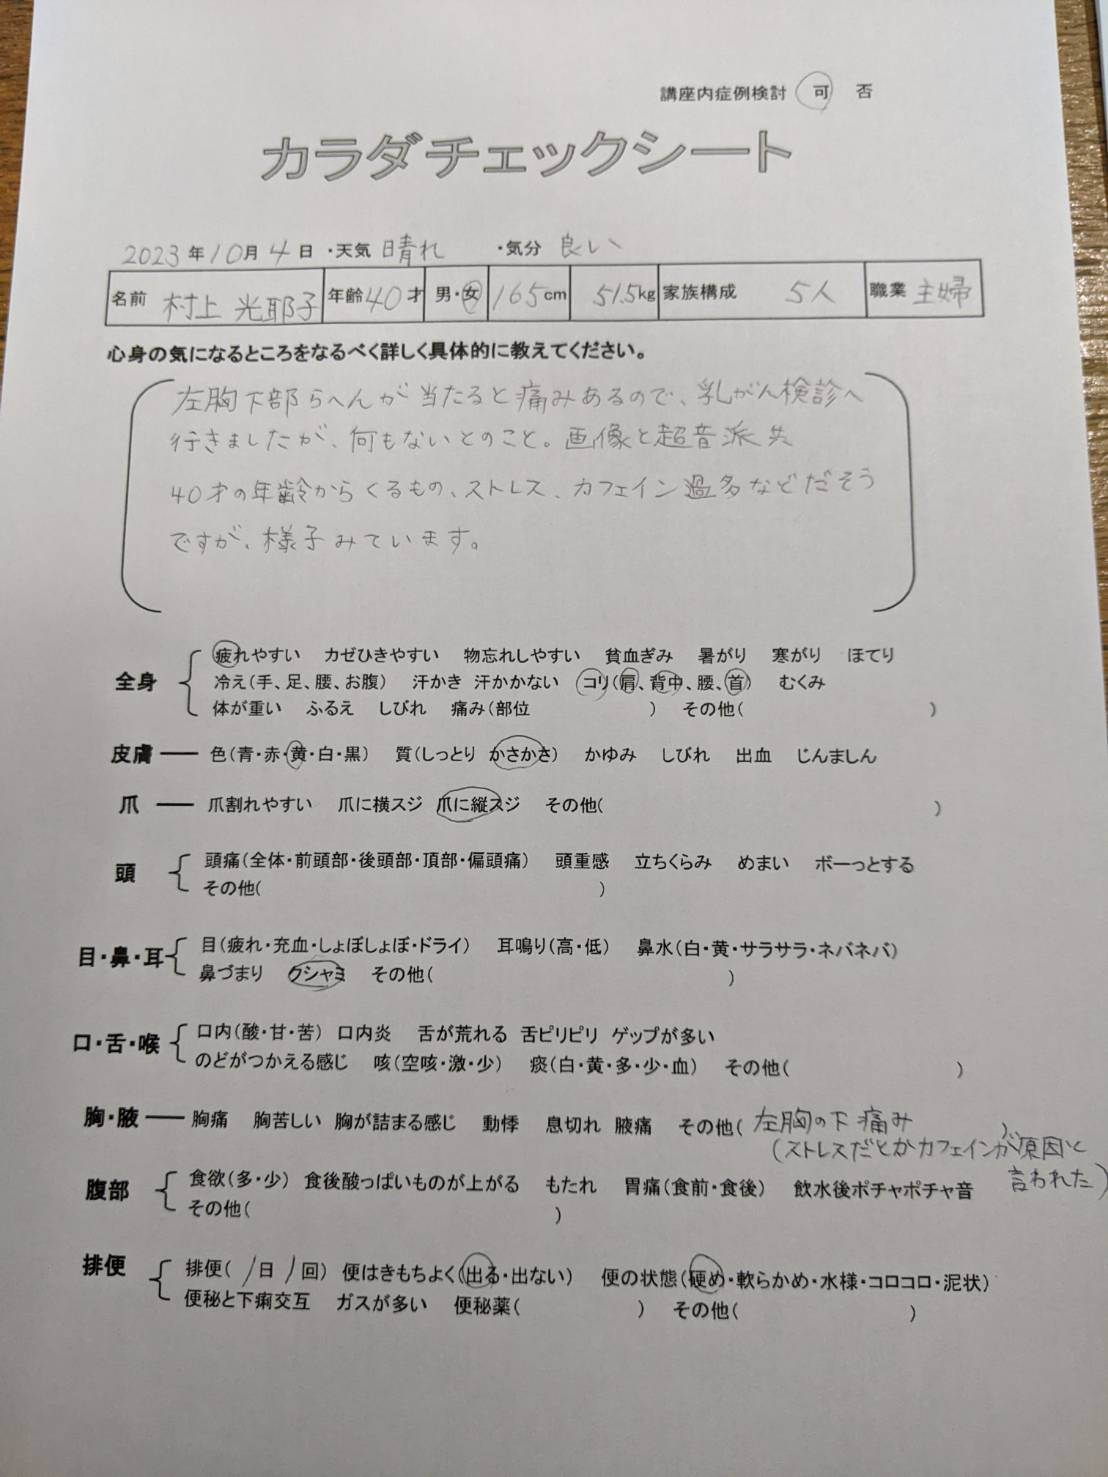 講座内症例検討 可 否
カラダチェックシート
2023年10月4日 ・天気 晴れ ・気分 良い
名前 村上 光耶子 年齢40才 男・女 165cm 51.5kg 家族構成 5人 職業 主婦
心身の気になるところをなるべく詳しく具体的に教えてください。
左胸下部らへんが当たると痛みあるので、乳がん検診へ
行きましたが、何もないとのこと。画像と超音派共
40才の年齢からくるもの、ストレス、カフェイン過多などだそう
ですが、様子みています。
全身 疲れやすい カゼひきやすい 物忘れしやすい 貧血ぎみ 暑がり 寒がり ほてり
冷え(手、足、腰、お腹) 汗かき 汗かかない コリ(肩、背中、腰、首) むくみ
体が重い ふるえ しびれ 痛み(部位 ) その他( )
皮膚 色(青・赤・黄・白・黒) 質(しっとり かさかさ) かゆみ しびれ 出血 じんましん
爪 爪割れやすい 爪に横スジ 爪に縦スジ その他( )
頭 頭痛(全体・前頭部・後頭部・頂部・偏頭痛) 頭重感 立ちくらみ めまい ボーっとする
その他( )
目・鼻・耳 目(疲れ・充血・しょぼしょぼ・ドライ) 耳鳴り(高・低) 鼻水(白・黄・サラサラ・ネバネバ)
鼻づまり クシャミ その他( )
口・舌・喉 口内(酸・甘・苦) 口内炎 舌が荒れる 舌ピリピリ ゲップが多い
のどがつかえる感じ 咳(空咳・激・少) 痰(白・黄・多・少・血) その他( )
胸・腋 胸痛 胸苦しい 胸が詰まる感じ 動悸 息切れ 腋痛 その他( 左胸の下 痛み )
(ストレスだとかカフェインが原因と
言われた)
腹部 食欲(多・少) 食後酸っぱいものが上がる もたれ 胃痛(食前・食後) 飲水後ポチャポチャ音
その他( )
排便 排便( 1日 1回) 便はきもちよく(出る・出ない) 便の状態(硬め・軟らかめ・水様・コロコロ・泥状)
便秘と下痢交互 ガスが多い 便秘薬( ) その他( )